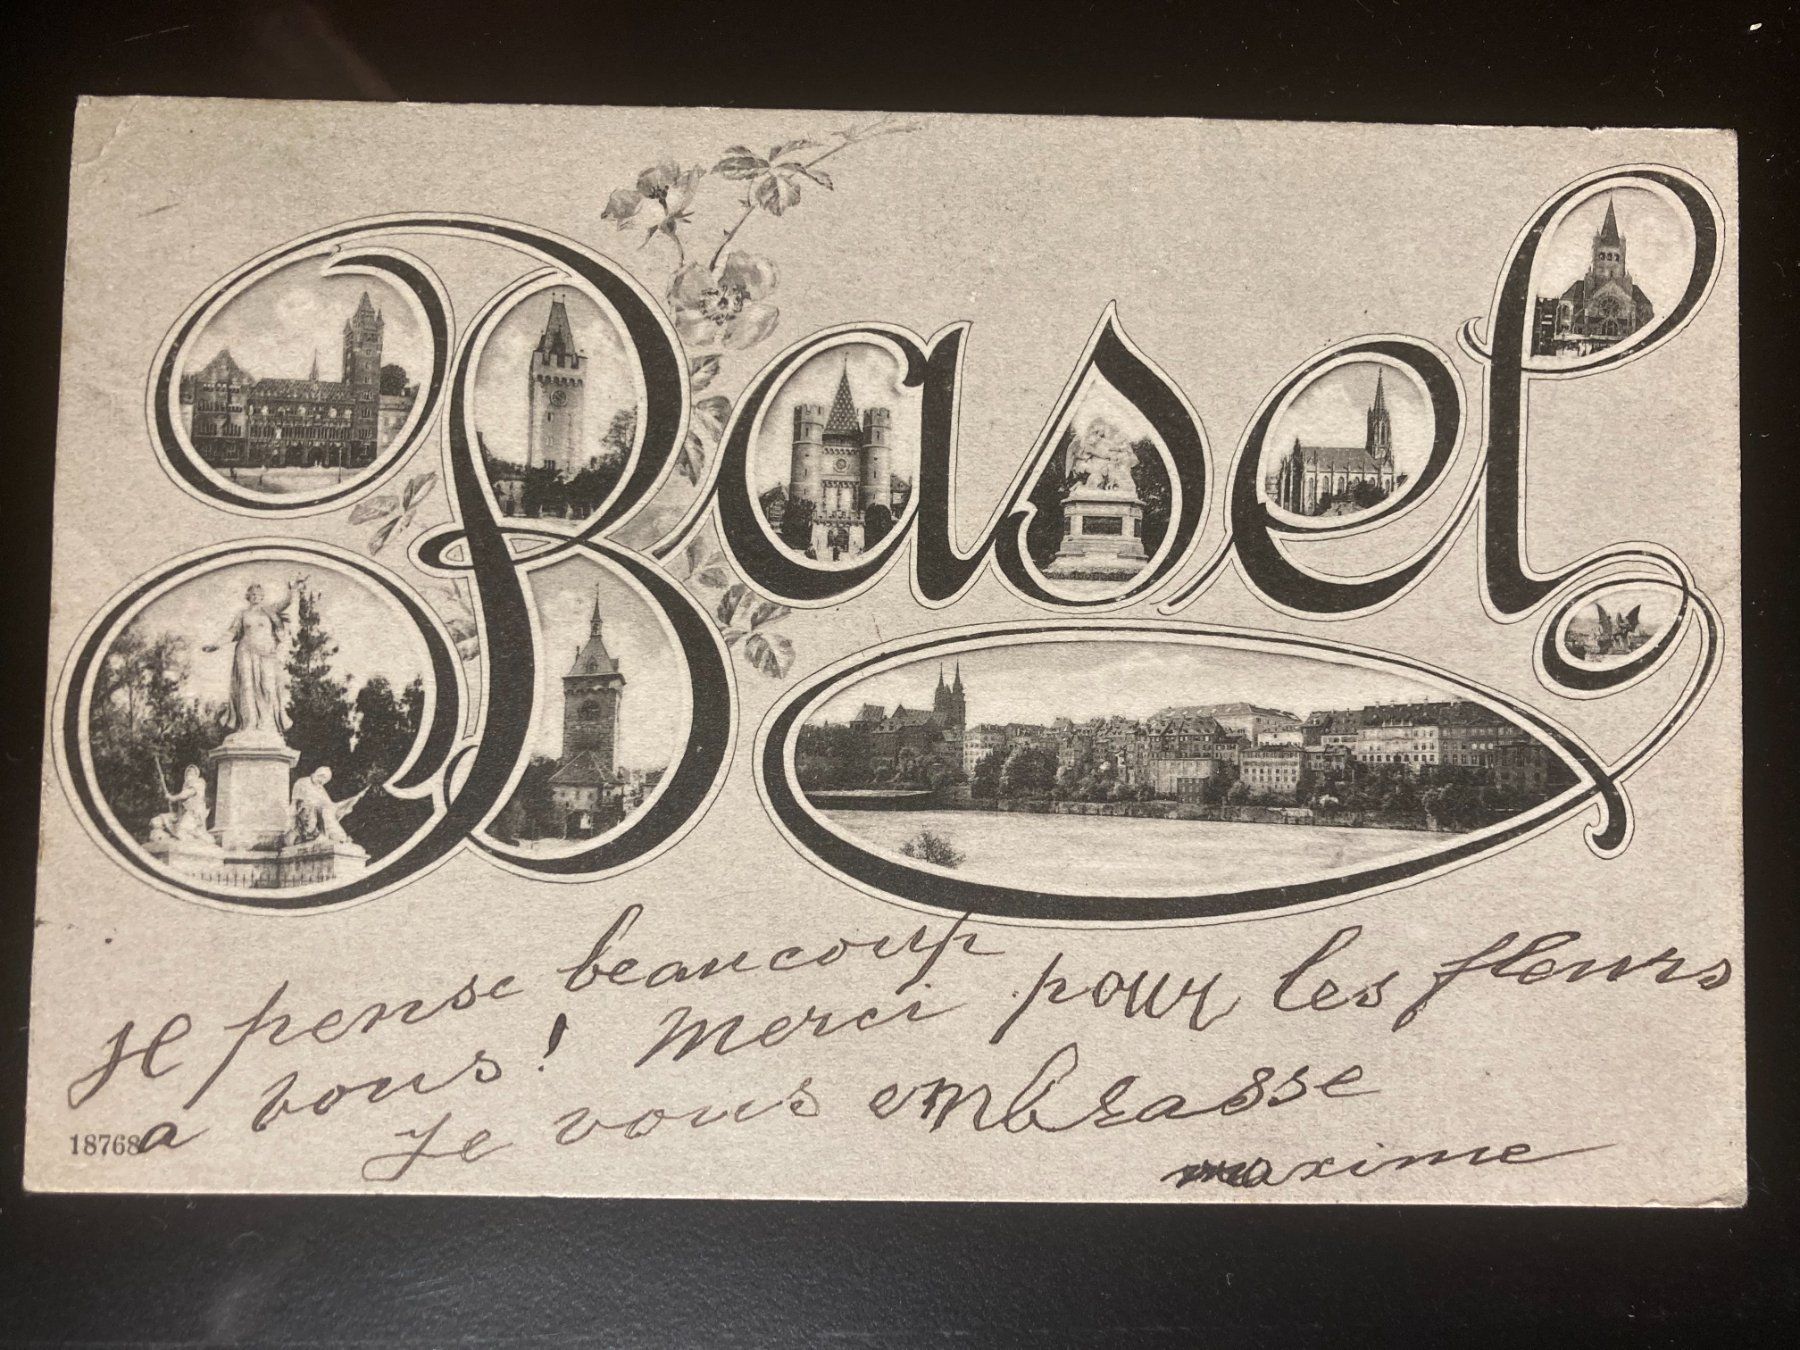 Basel
Je pense beaucoup
a vous! Merci pour les fleurs
Je vous embrasse
maxime
18768